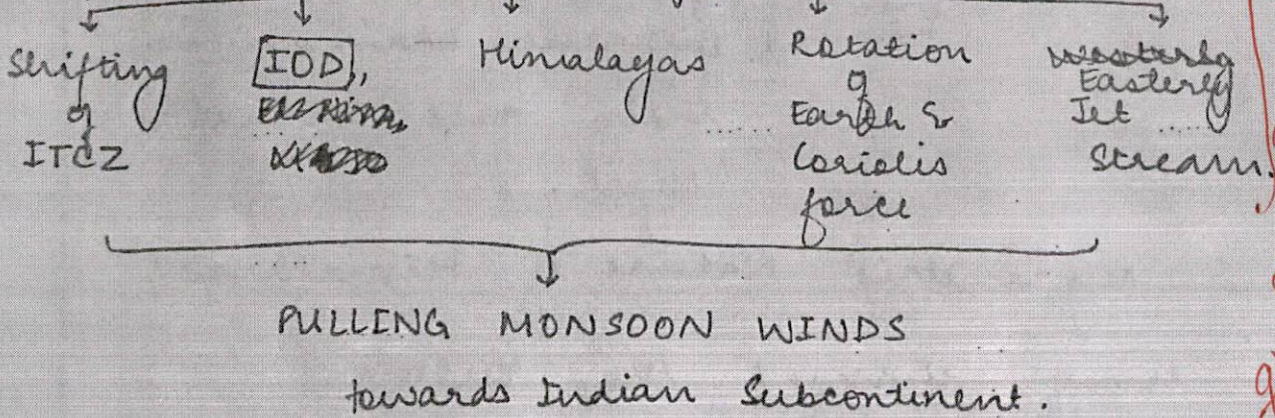 Shifting of ITCZ
IOD,
Himalayas
Rotation of Earth & Coriolis force
Easterly Jet Stream.
PULLING MONSOON WINDS
towards Indian Subcontinent.